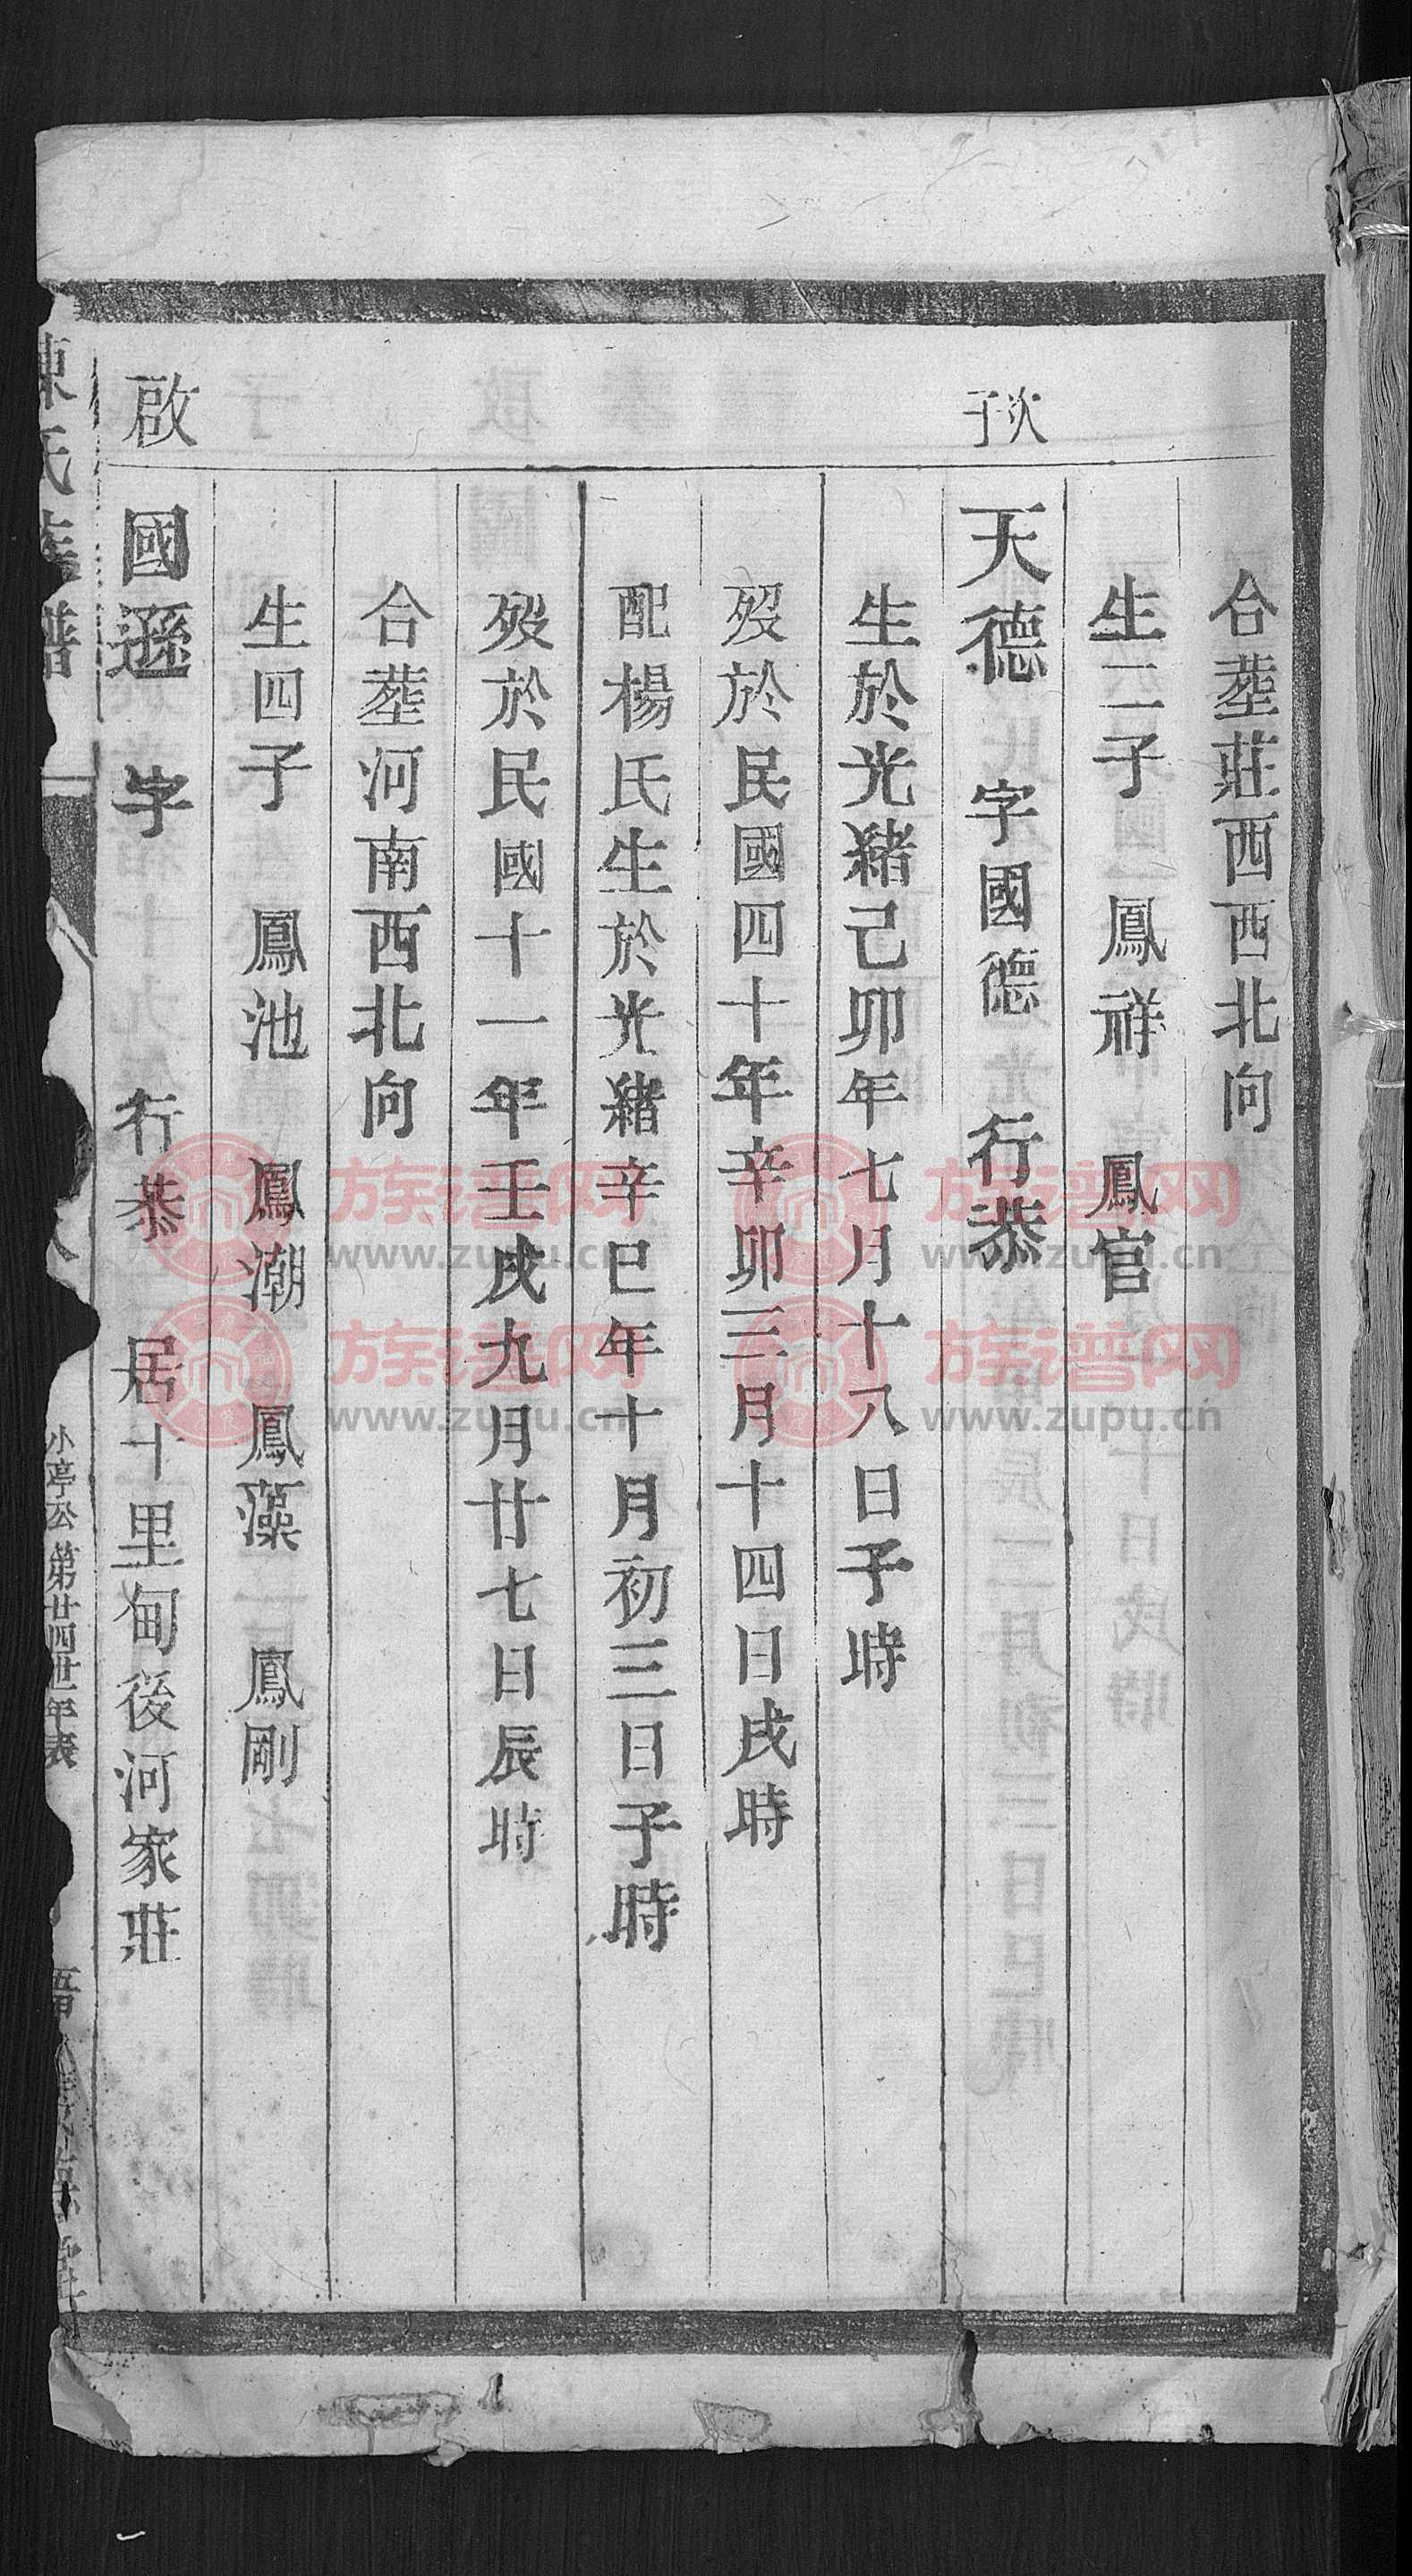 合塟莊西西北向
生二子 鳳祥 鳳官
次子
天德 字國德 行恭
生於光緒己卯年七月十八日子時
歿於民國四十年辛卯三月十四日戌時
配楊氏生於光緒辛巳年十月初三日子時
歿於民國十一年壬戌九月廿七日辰時
合塟河南西北向
生四子 鳳池 鳳潮 鳳藻 鳳剛
啟
國遜 字 行恭 居十里甸後河家莊
陳氏族譜
小亭公第廿四世年表
族谱网
www.zupu.cn
族谱网
www.zupu.cn
族谱网
www.zupu.cn
族谱网
www.zupu.cn